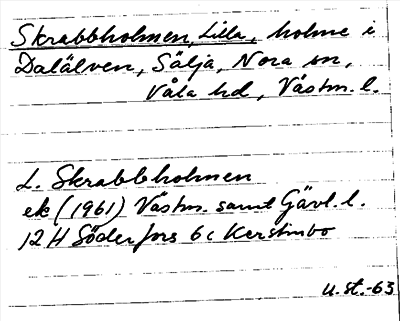 Skrabbholmen, Lilla, holme i
Dalälven, Sälja, Nora sn,
Våla hd, Västm. l.
L. Skrabbholmen
ek (1961) Västm. samt Gävl. l.
12 H Söderfors 6 c Kerstinbo
U.st.-63